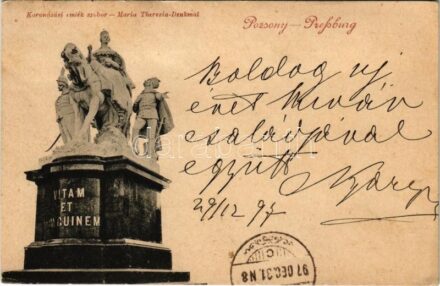 Koronázási emlék szobor — Maria Theresia-Denkmal
Pozsony — Preßburg
Boldog uj
évet kiván
családjával
együtt
29/12 97
VITAM
ET
SANGUINEM
97 DEC. 31. N8